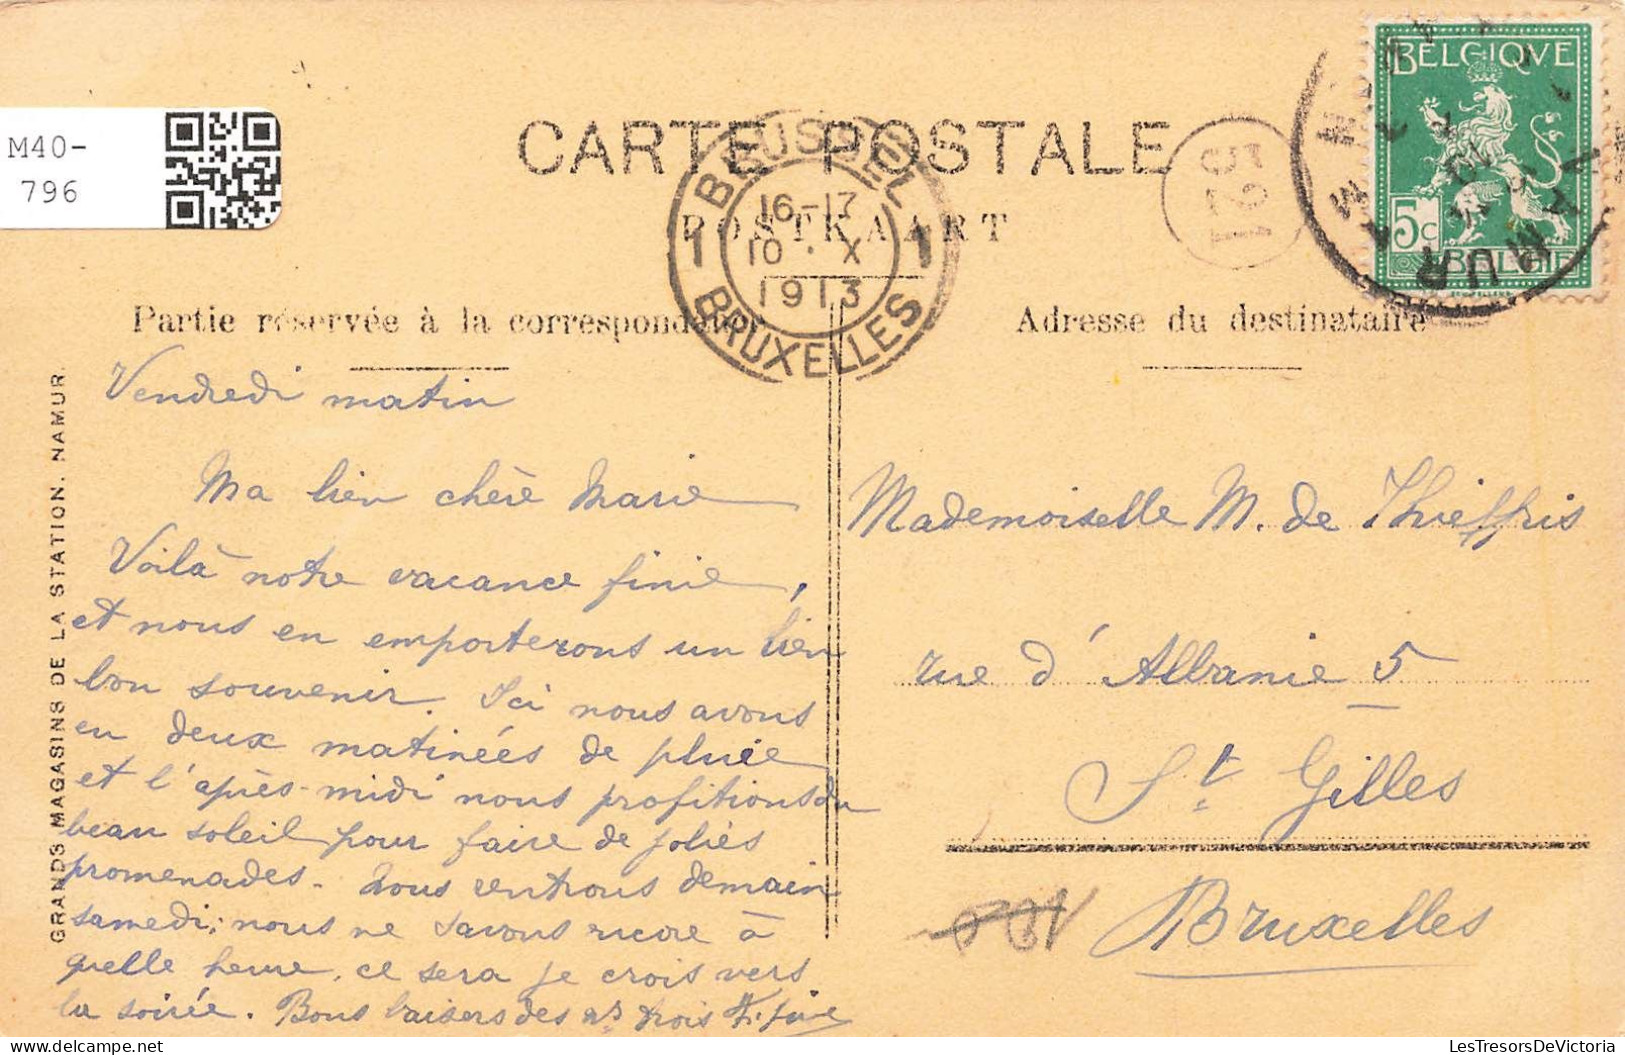 M40-
796
CARTE POSTALE
POSTKAART
BRUSSEL
16-17
1 10 · X 1
1913
BRUXELLES
BELGIQUE
5c
BELGIË
NAMUR
Partie réservée à la correspondance
Adresse du destinataire
GRANDS MAGASINS DE LA STATION. NAMUR.
Vendredi matin
Ma bien chère Marie
Voilà notre vacance finie,
et nous en emporterons un bien
bon souvenir. Ici nous avons
eu deux matinées de pluie
et l'après-midi nous profitions du
beau soleil pour faire de jolies
promenades. Nous rentrons demain
samedi; nous ne savons encore à
quelle heure, ce sera je crois vers
la soirée. Bons baisers des trois
Mademoiselle M. de Thieffris
rue d'Albanie 5
St. Gilles
Bruxelles
LesTresorsDeVictoria.com